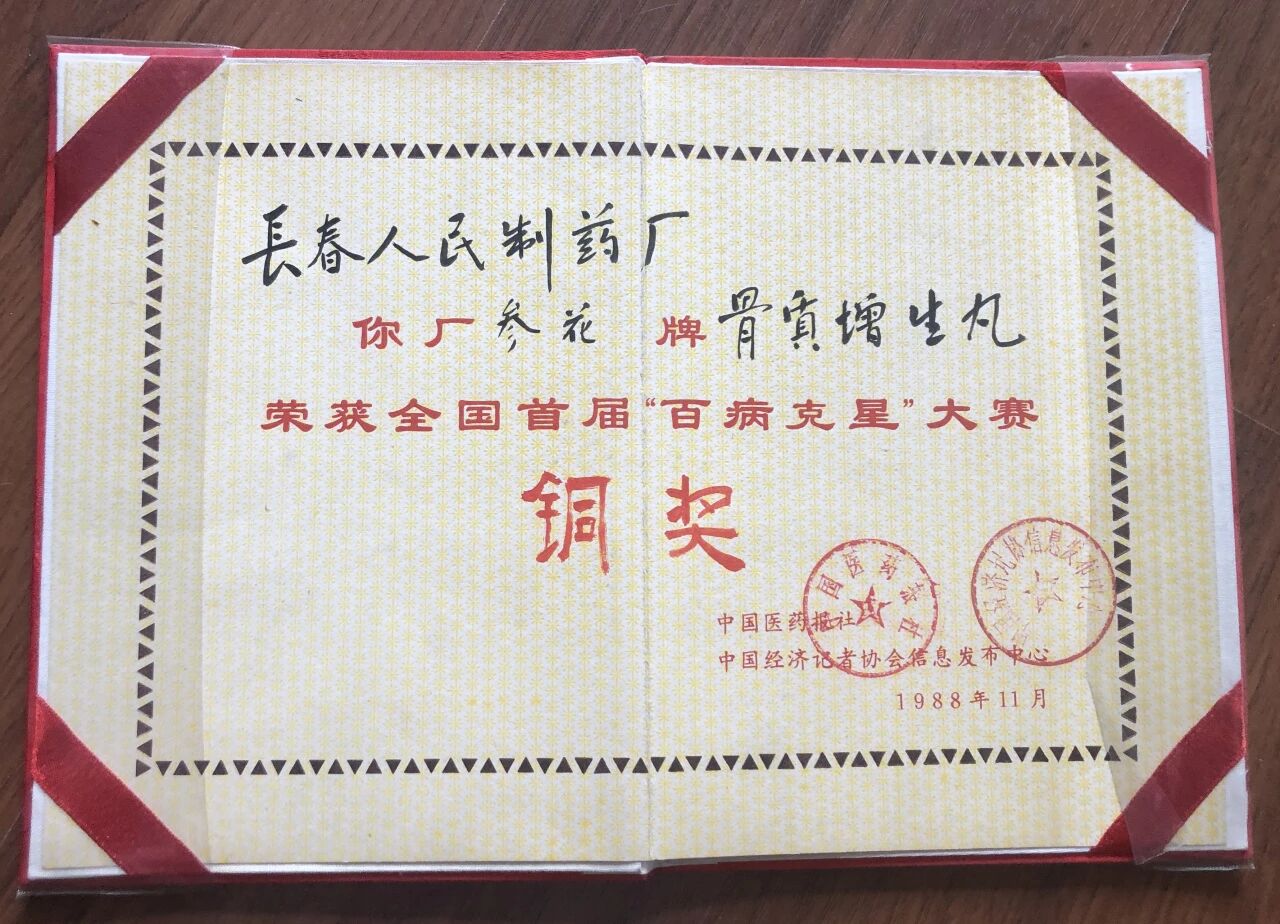 長春人民制药厂
你厂参花牌骨質增生丸
荣获全国首届“百病克星”大赛
铜奖
中国医药报社
中国经济记者协会信息发布中心
1988年11月
国医药报社
济记协信息发布中心